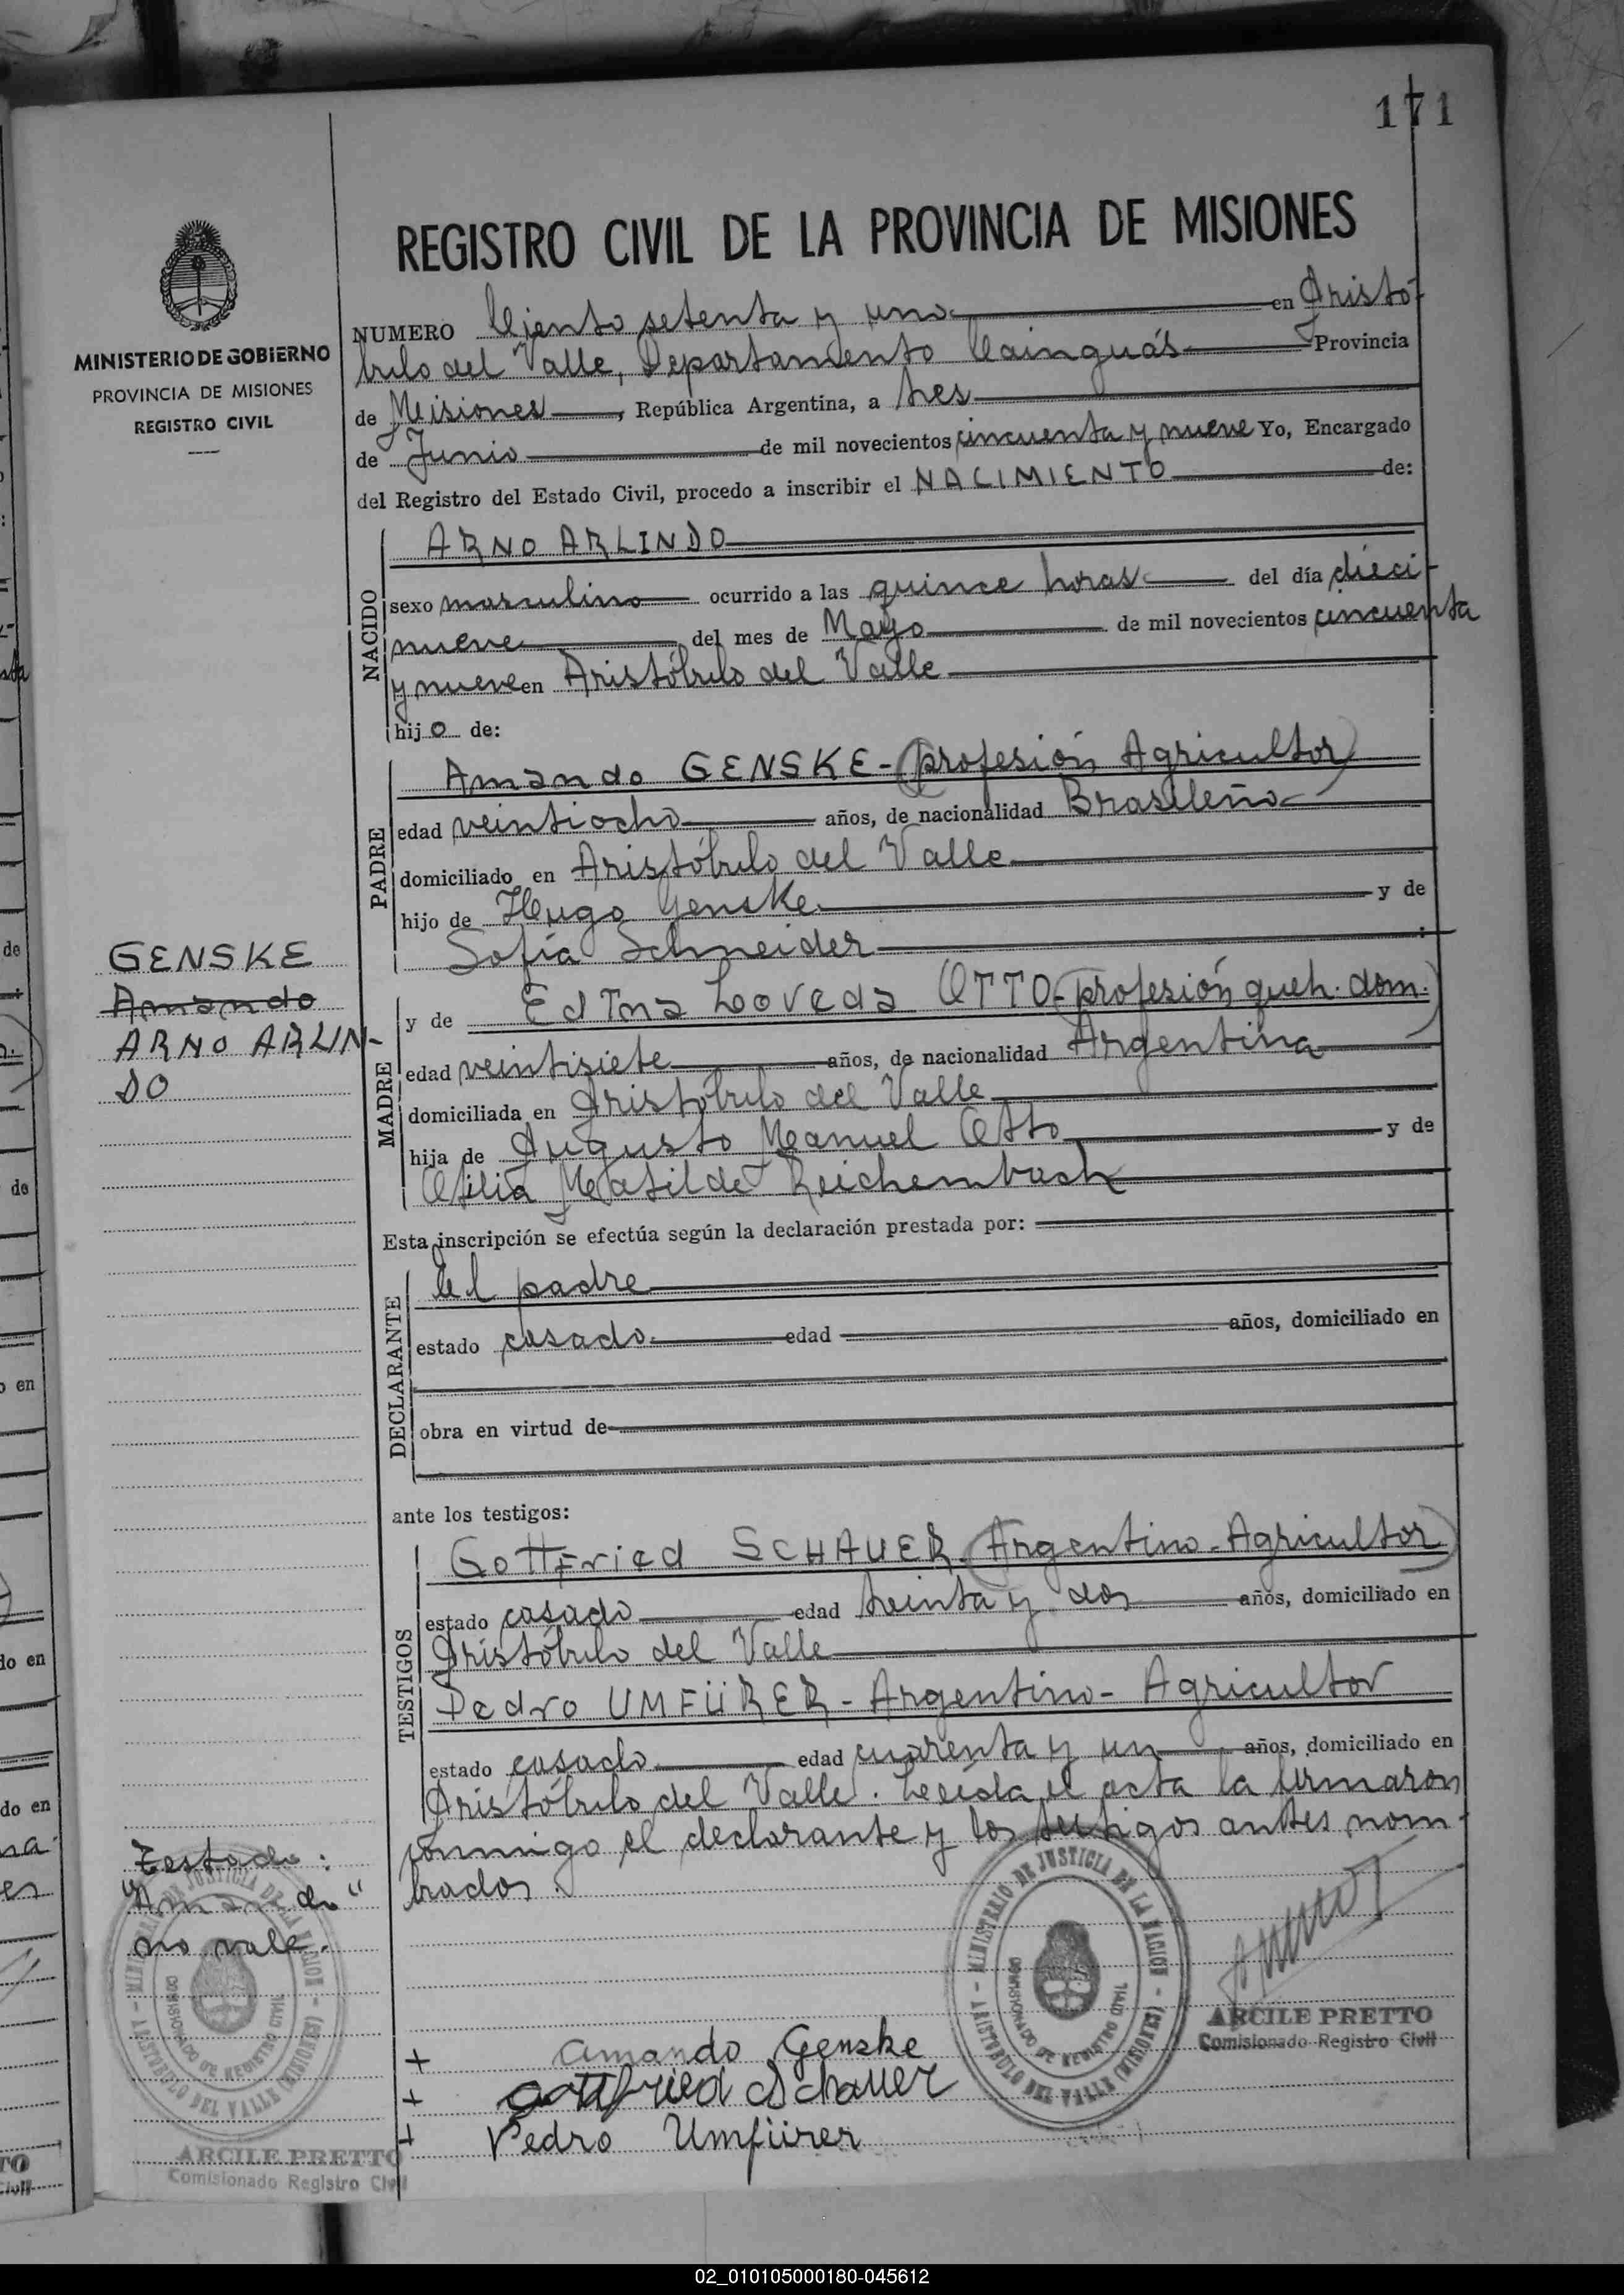 171
REGISTRO CIVIL DE LA PROVINCIA DE MISIONES
MINISTERIO DE GOBIERNO
PROVINCIA DE MISIONES
REGISTRO CIVIL
NUMERO Ciento setenta y uno en Aristó-
bulo del Valle, Departamento Cainguás Provincia
de Misiones, República Argentina, a tres
de Junio de mil novecientos cincuenta y nueve Yo, Encargado
del Registro del Estado Civil, procedo a inscribir el NACIMIENTO de:
NACIDO
ARNO ARLINDO
sexo masculino ocurrido a las quince horas del día dieci-
nueve del mes de Mayo de mil novecientos cincuenta
y nueve en Aristóbulo del Valle
hijo de:
PADRE
Amando GENSKE-(profesión Agricultor)
edad veintiocho años, de nacionalidad Brasileño
domiciliado en Aristóbulo del Valle
hijo de Hugo Genske y de
Sofía Schneider
GENSKE
Amando
ARNO ARLIN-
DO
MADRE
y de Edtna Loveda OTTO-(profesión queh. dom.)
edad veintisiete años, de nacionalidad Argentina
domiciliada en Aristóbulo del Valle
hija de Augusto Manuel Otto y de
Otilia Matilde Reichembach
Esta inscripción se efectúa según la declaración prestada por:
DECLARANTE
El padre
estado casado edad años, domiciliado en
obra en virtud de
ante los testigos:
TESTIGOS
Gottfried SCHAUER-(Argentino-Agricultor)
estado casado edad treinta y dos años, domiciliado en
Aristóbulo del Valle
Pedro UMFÜRER-Argentino-Agricultor
estado casado edad cuarenta y un años, domiciliado en
Aristóbulo del Valle. Leída el acta la firmaron
conmigo el declarante y los testigos antes nom-
brados.
Testado:
"Amando"
no vale.
MINISTERIO DE JUSTICIA DE LA NACION
COMISIONADO DE REGISTRO CIVIL
ARISTOBULO DEL VALLE (MISIONES)
MINISTERIO DE JUSTICIA DE LA NACION
COMISIONADO DE REGISTRO CIVIL
ARISTOBULO DEL VALLE (MISIONES)
ARCILE PRETTO
Comisionado Registro Civil
+ Amando Genske
+ Gottfried Schauer
+ Pedro Umfürer
ARCILE PRETTO
Comisionado Registro Civil
02_010105000180-045612